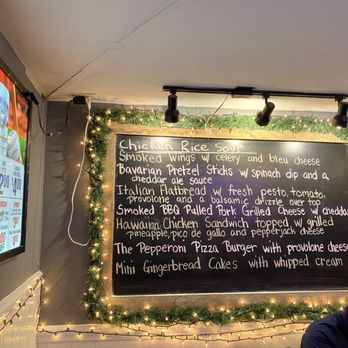 Chicken Rice Soup
Smoked Wings w/ celery and bleu cheese
Bavarian Pretzel Sticks w/ spinach dip and a
cheddar ale sauce
Italian Flatbread w/ fresh pesto, tomato,
provolone and a balsamic drizzle over top
Smoked BBQ Pulled Pork Grilled Cheese w/ cheddar
Hawaiian Chicken Sandwich topped w/ grilled
pineapple, pico de gallo and pepperjack cheese
The Pepperoni Pizza Burger with provolone cheese
Mini Gingerbread Cakes with whipped cream